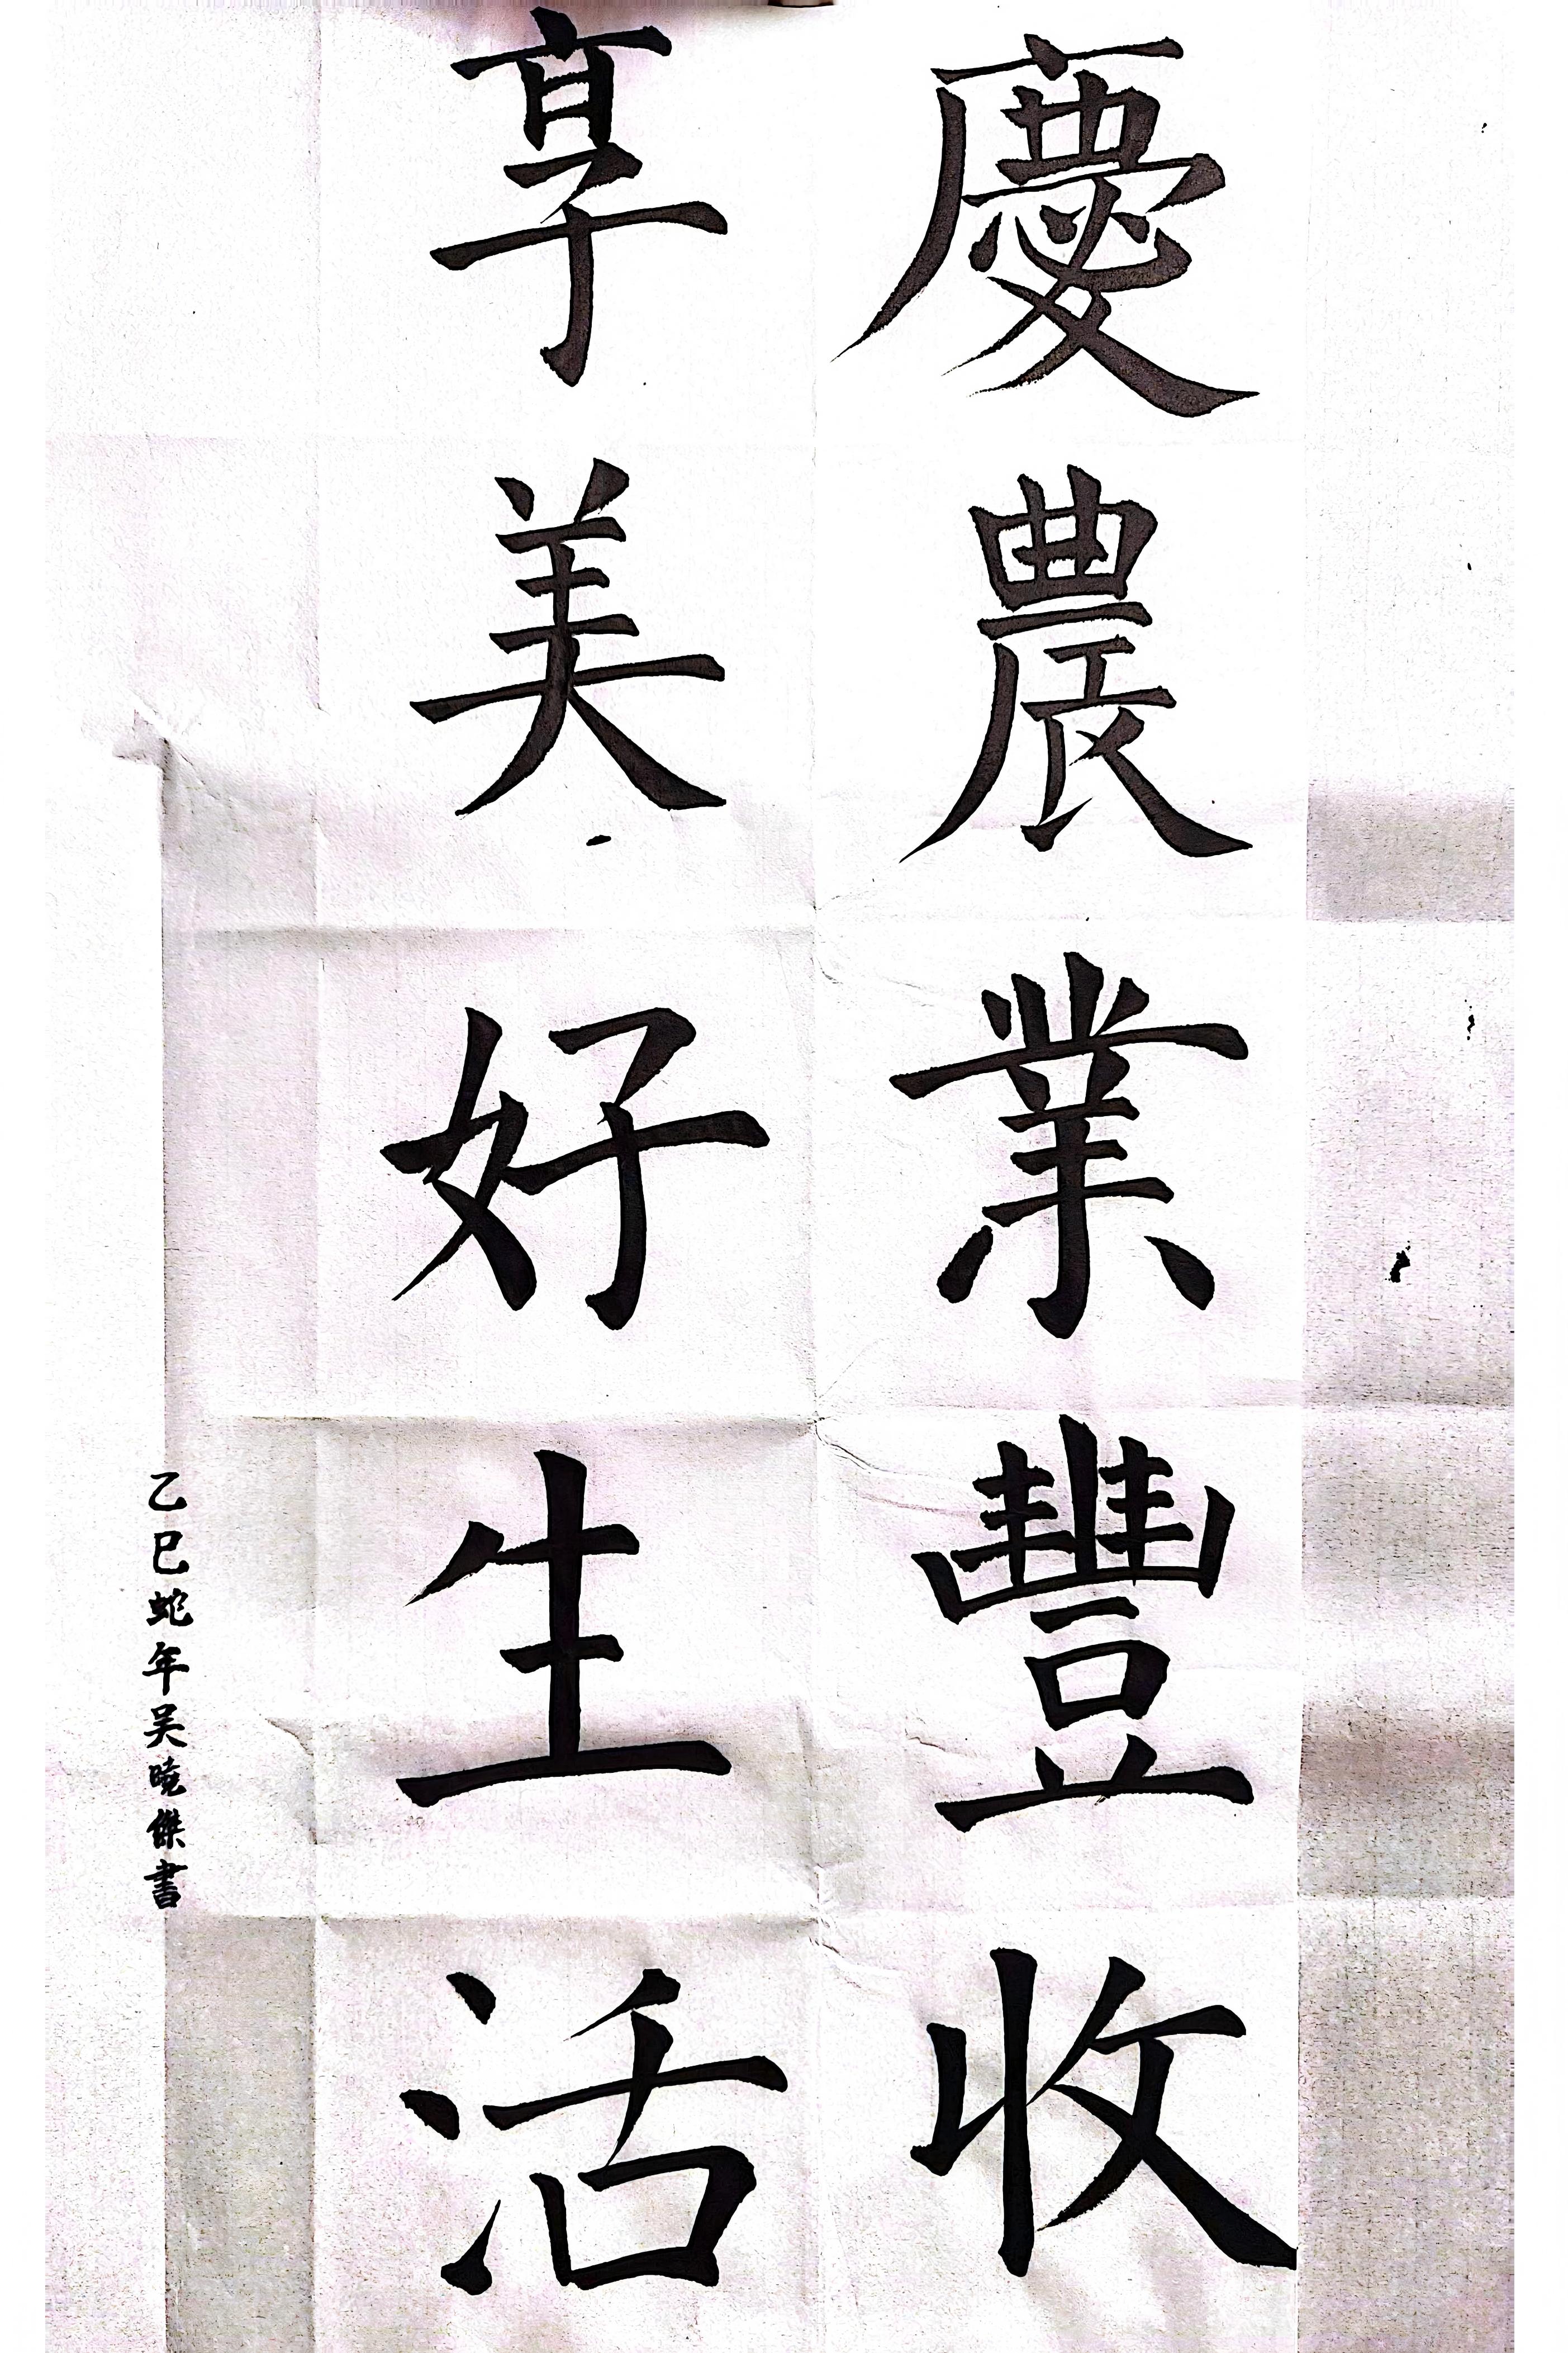 慶農業豐收
享美好生活
乙巳蛇年吴曉傑書